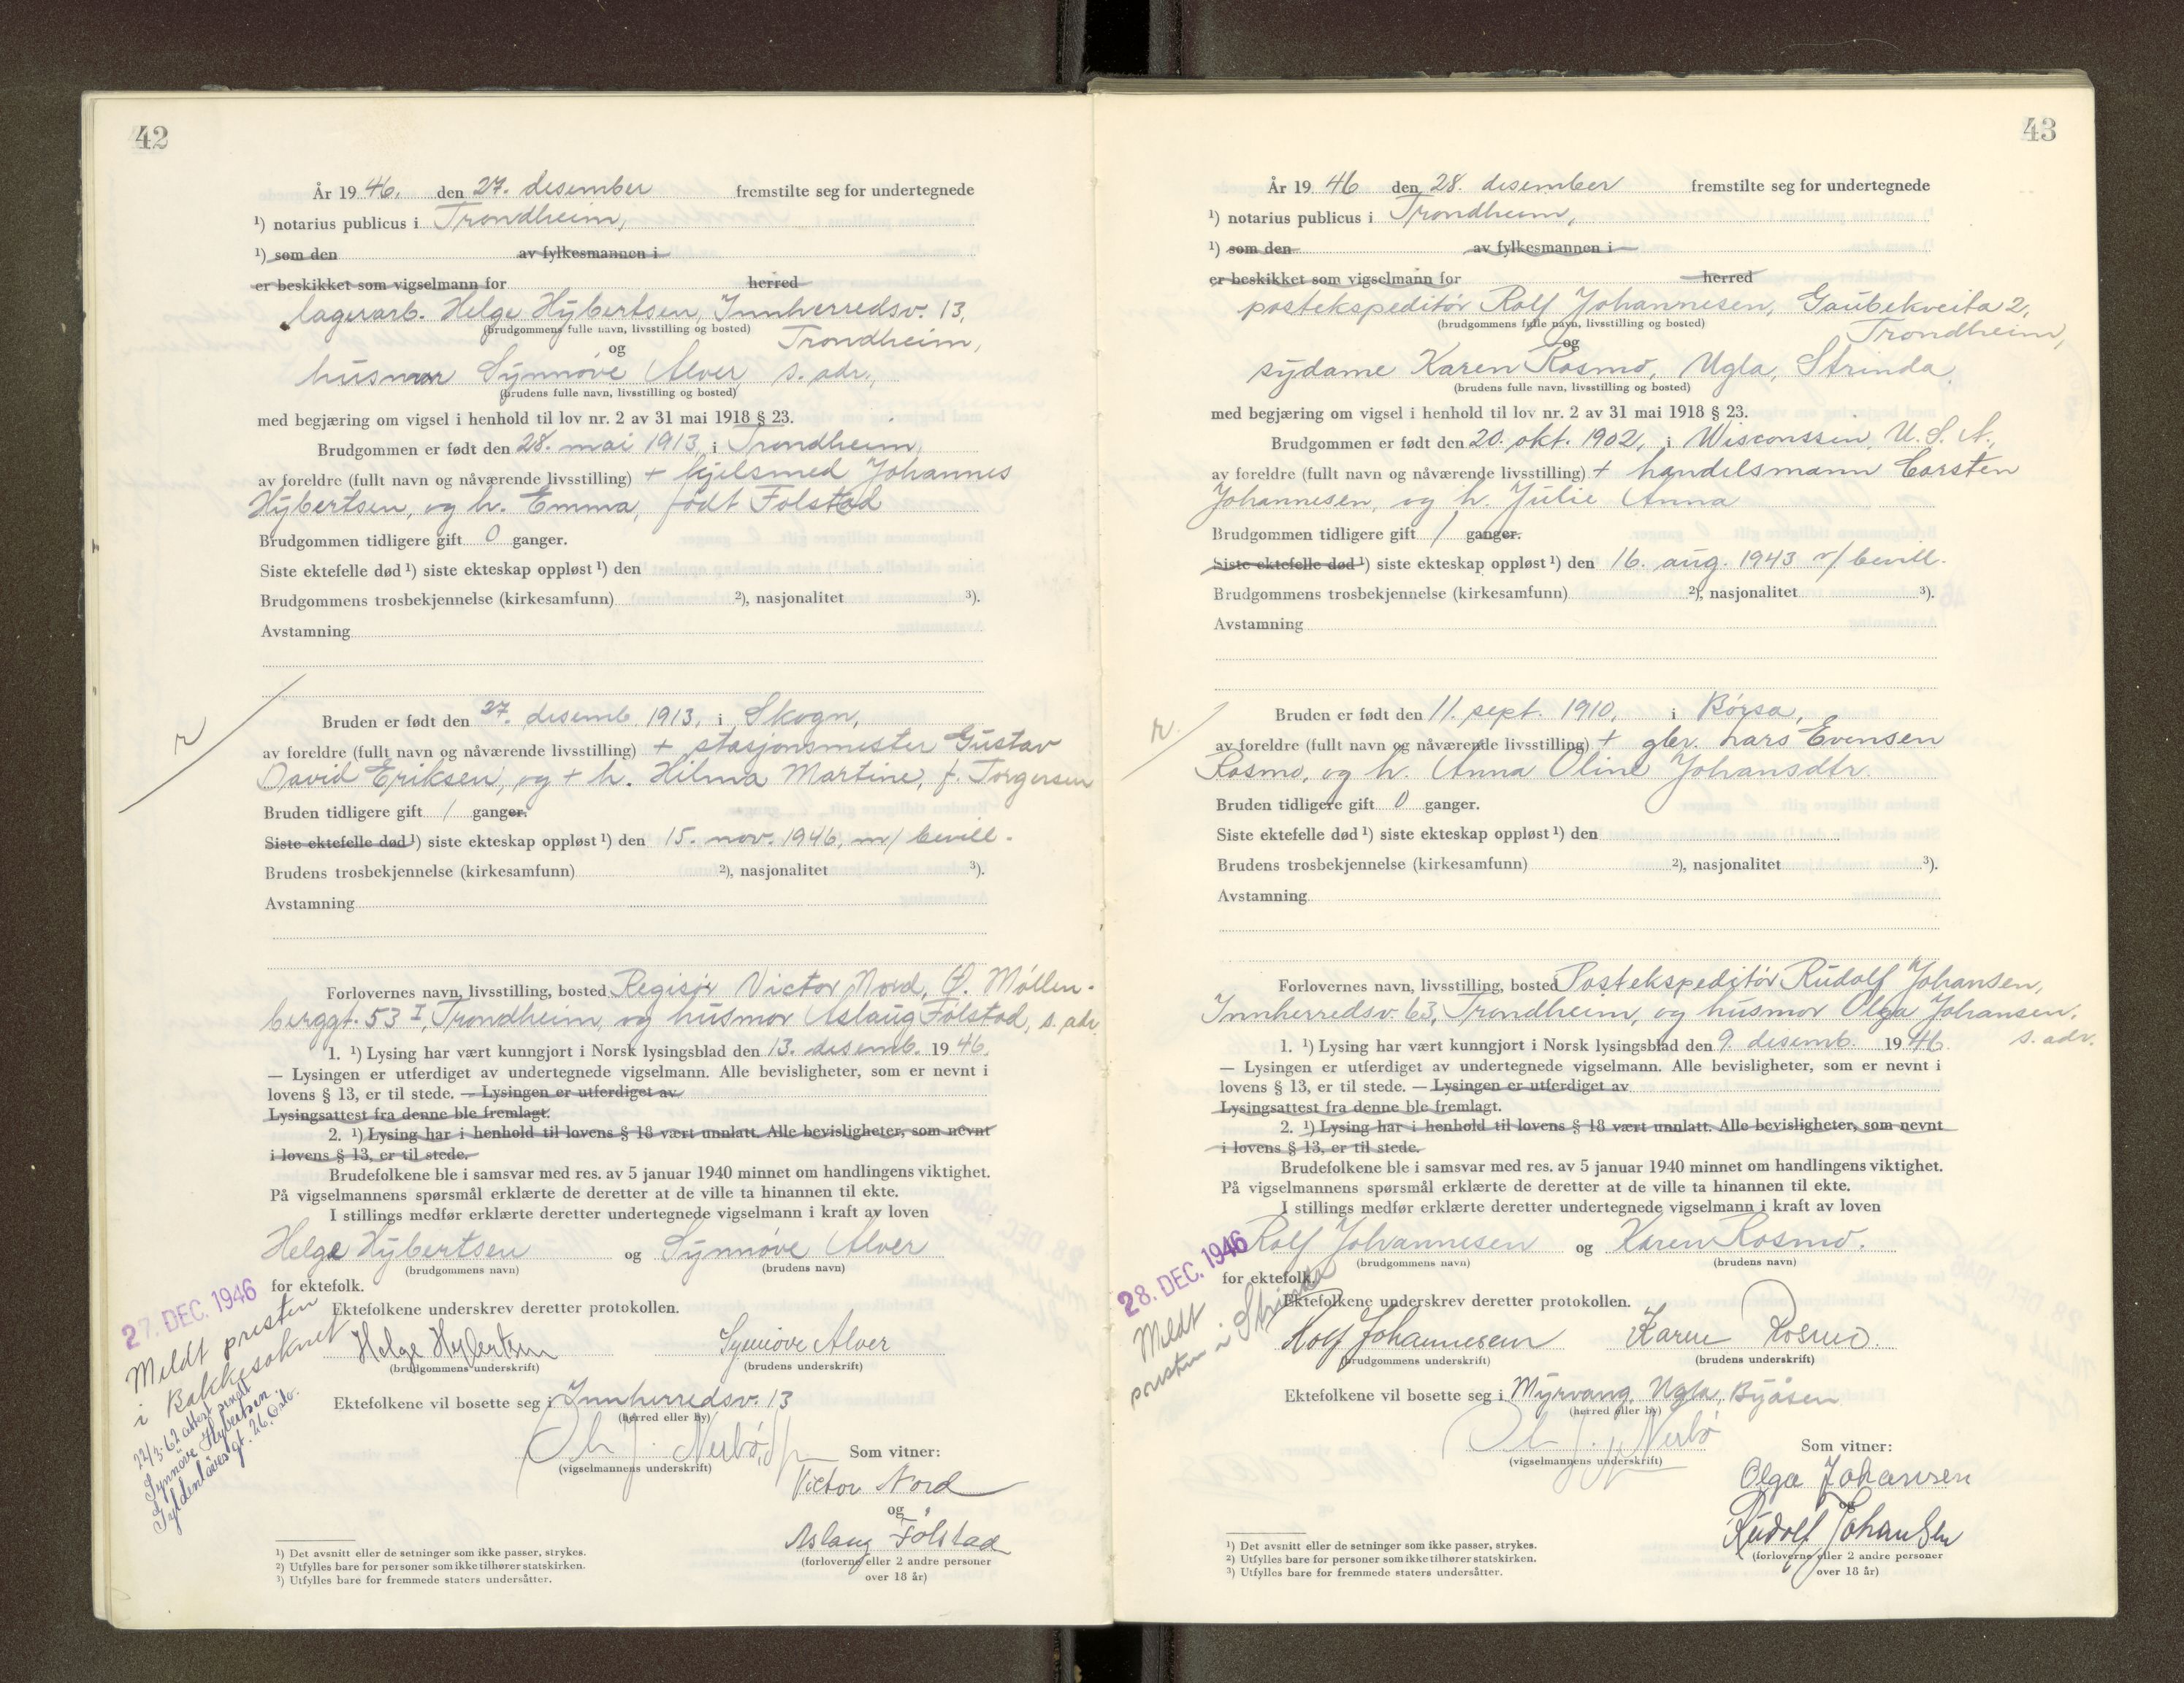 42
År 19 46. den 27. desember fremstilte seg for undertegnede
¹) notarius publicus i Trondheim,
¹) som den av fylkesmannen i
er beskikket som vigselmann for herred
lagerarb. Helge Hybertsen, Innherredsv. 13,
(brudgommens fulle navn, livsstilling og bosted)
Trondheim,
og
husmor Synnöve Alver, s. adr.,
(brudens fulle navn, livsstilling og bosted)
med begjæring om vigsel i henhold til lov nr. 2 av 31 mai 1918 § 23.
Brudgommen er født den 28. mai 1913, i Trondheim,
av foreldre (fullt navn og nåværende livsstilling) + kjelsmed Johannes
Hybertsen, og h. Emma, födt Folstad
Brudgommen tidligere gift 0 ganger.
Siste ektefelle død ¹) siste ekteskap oppløst ¹) den
Brudgommens trosbekjennelse (kirkesamfunn) ²), nasjonalitet ³).
Avstamning
r
Bruden er født den 27. desemb. 1913, i Skogn,
av foreldre (fullt navn og nåværende livsstilling) + stasjonsmester Gustav
David Eriksen, og + h. Hilma Martine, f. Torgersen
Bruden tidligere gift 1 ganger.
Siste ektefelle død ¹) siste ekteskap oppløst ¹) den 15. nov. 1946, m/ bevill.
Brudens trosbekjennelse (kirkesamfunn) ²), nasjonalitet ³).
Avstamning
Forlovernes navn, livsstilling, bosted Regisjr Victor Nord, Ø. Möllen-
berggt. 53 I, Trondheim, og husmor Aslaug Folstad, s. adr.
1. ¹) Lysing har vært kunngjort i Norsk lysingsblad den 13. desemb. 19 46.
— Lysingen er utferdiget av undertegnede vigselmann. Alle bevisligheter, som er nevnt i
lovens § 13, er til stede. — Lysingen er utferdiget av
Lysingsattest fra denne ble fremlagt.
2. ¹) Lysing har i henhold til lovens § 18 vært unnlatt. Alle bevisligheter, som nevnt
i lovens § 13, er til stede.
Brudefolkene ble i samsvar med res. av 5 januar 1940 minnet om handlingens viktighet.
På vigselmannens spørsmål erklærte de deretter at de ville ta hinannen til ekte.
I stillings medfør erklærte deretter undertegnede vigselmann i kraft av loven
Helge Hybertsen og Synnöve Alver
(brudgommens navn) (brudens navn)
for ektefolk.
27. DEC. 1946
Meldt presten
i Bakkesoknet
22/3-62 attest sendt
Synnöve Hybertsen
Gyldenlövesgt. 26. Oslo.
Ektefolkene underskrev deretter protokollen.
Helge Hybertsen Synnöve Alver
(brudgommens underskrift) (brudens underskrift)
Ektefolkene vil bosette seg i Innherredsv. 13
(herred eller by)
Nerbö,
(vigselmannens underskrift)
Som vitner:
Victor Nord
og
Aslaug Folstad
(forloverne eller 2 andre personer
over 18 år)
¹) Det avsnitt eller de setninger som ikke passer, strykes.
²) Utfylles bare for personer som ikke tilhører statskirken.
³) Utfylles bare for fremmede staters undersåtter.
43
År 19 46 den 28. desember fremstilte seg for undertegnede
¹) notarius publicus i Trondheim,
¹) som den av fylkesmannen i
er beskikket som vigselmann for herred
postekspeditör Rolf Johannesen, Gaubekveita 2,
(brudgommens fulle navn, livsstilling og bosted)
Trondheim,
og
sydame Karen Rosmo, Ugla, Strinda
(brudens fulle navn, livsstilling og bosted)
med begjæring om vigsel i henhold til lov nr. 2 av 31 mai 1918 § 23.
Brudgommen er født den 20. okt. 1902, i Wisconssen, U.S.A.,
av foreldre (fullt navn og nåværende livsstilling) + handelsmann Carsten
Johannesen, og h. Julie Anna
Brudgommen tidligere gift 1 ganger.
Siste ektefelle død ¹) siste ekteskap oppløst ¹) den 16. aug. 1943 v/ bevill.
Brudgommens trosbekjennelse (kirkesamfunn) ²), nasjonalitet ³).
Avstamning
r.
Bruden er født den 11. sept. 1910, i Börsa,
av foreldre (fullt navn og nåværende livsstilling) + gbr. Lars Evensen
Rosmo, og h. Anna Oline Johansdtr.
Bruden tidligere gift 0 ganger.
Siste ektefelle død ¹) siste ekteskap oppløst ¹) den
Brudens trosbekjennelse (kirkesamfunn) ²), nasjonalitet ³).
Avstamning
Forlovernes navn, livsstilling, bosted Postekspeditör Rudolf Johansen,
Innherredsv. 63, Trondheim, og husmor Olga Johansen,
s. adr.
1. ¹) Lysing har vært kunngjort i Norsk lysingsblad den 9. desemb. 19 46
— Lysingen er utferdiget av undertegnede vigselmann. Alle bevisligheter, som er nevnt i
lovens § 13, er til stede. — Lysingen er utferdiget av
Lysingsattest fra denne ble fremlagt.
2. ¹) Lysing har i henhold til lovens § 18 vært unnlatt. Alle bevisligheter, som nevnt
i lovens § 13, er til stede.
Brudefolkene ble i samsvar med res. av 5 januar 1940 minnet om handlingens viktighet.
På vigselmannens spørsmål erklærte de deretter at de ville ta hinannen til ekte.
I stillings medfør erklærte deretter undertegnede vigselmann i kraft av loven
Rolf Johannesen og Karen Rosmo.
(brudgommens navn) (brudens navn)
for ektefolk.
28. DEC. 1946
Meldt
presten i Strinda
Ektefolkene underskrev deretter protokollen.
Rolf Johannesen Karen Rosmo.
(brudgommens underskrift) (brudens underskrift)
Ektefolkene vil bosette seg i Myrvang, Ugla, Byåsen
(herred eller by)
Nerbö
(vigselmannens underskrift)
Som vitner:
Olga Johansen
og
Rudolf Johansen
(forloverne eller 2 andre personer
over 18 år)
¹) Det avsnitt eller de setninger som ikke passer, strykes.
²) Utfylles bare for personer som ikke tilhører statskirken.
³) Utfylles bare for fremmede staters undersåtter.